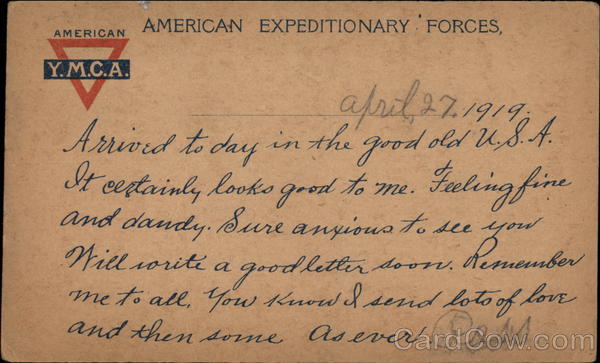 AMERICAN
Y.M.C.A.
AMERICAN EXPEDITIONARY FORCES,
april, 27. 1919.
Arrived to day in the good old U.S.A.
It certainly looks good to me. Feeling fine
and dandy. Sure anxious to see you
Will write a good letter soon. Remember
me to all. You know I send lots of love
and then some As ever
CardCow.com